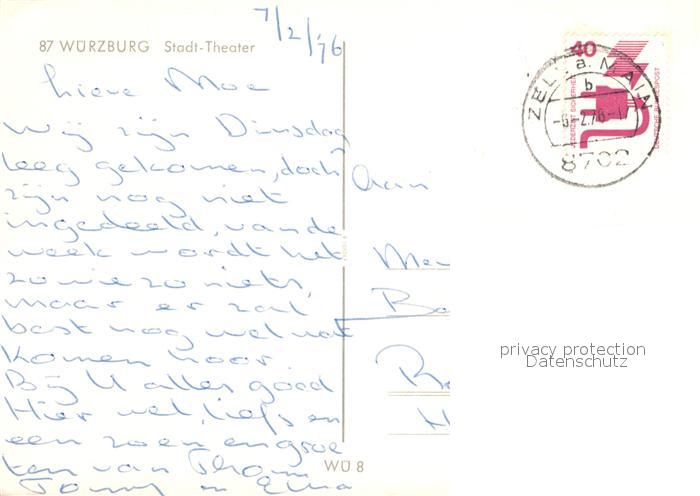 7/2/'76
87 WÜRZBURG Stadt-Theater
Lieve Moe
Wij zijn Dinsdag
leeg gekomen, doch
zijn nog niet
ingedeeld, van de
week wordt het
zowiezo niets,
maar er zal
best nog wel wat
komen hoor.
Bij U alles goed
Hier wel, liefs en
een zoen en groe
ten van Thom
Tonny en
Aan
Me
Ba
R
H
WÜ 8
40
JEDERZEIT SICHERHEIT
DEUTSCHE BUNDESPOST
ZELL a. MAIN
b
8702
privacy protection
Datenschutz